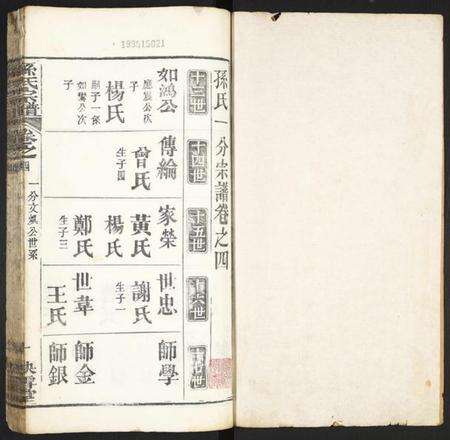 199515021
孫氏一分宗譜卷之四
十三世
十四世
十五世
十六世
十七世
如鴻公
應宸公次
子
楊氏
嗣子一係
如鷺公次
子
傳綸
曾氏
生子四
家榮
黃氏
楊氏
鄭氏
生子三
世忠
謝氏
生子一
世葦
王氏
師學
師金
師銀
孫氏宗譜
卷之四
一分文煥公世系
一
映雪堂